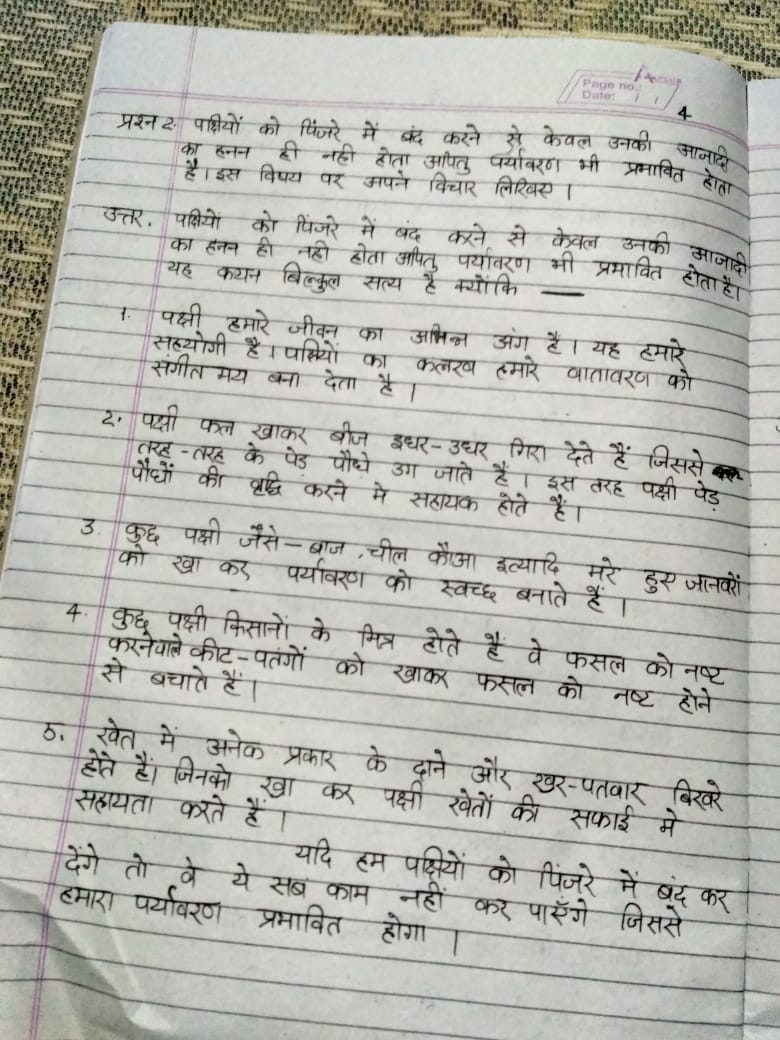 Aplus
Page no.:
Date: / /
4
प्रश्न 2. पक्षियों को पिंजरे में बंद करने से केवल उनकी आजादी
का हनन ही नही होता अपितु पर्यावरण भी प्रभावित होता
है। इस विषय पर अपने विचार लिखिए।
उत्तर. पक्षियों को पिंजरे में बंद करने से केवल उनकी आजादी
का हनन ही नही होता अपितु पर्यावरण भी प्रभावित होता है।
यह कथन बिल्कुल सत्य है क्योंकि —
1. पक्षी हमारे जीवन का अभिन्न अंग है। यह हमारे
सहयोगी है। पक्षियों का कलरव हमारे वातावरण को
संगीत मय बना देता है।
2. पक्षी फल खाकर बीज इधर-उधर गिरा देते हैं जिससे
तरह-तरह के पेड़ पौधे उग जाते है। इस तरह पक्षी पेड़
पौधों की वृद्धि करने मे सहायक होते हैं।
3. कुछ पक्षी जैसे – बाज, चील कौआ इत्यादि मरे हुए जानवरों
को खा कर पर्यावरण को स्वच्छ बनाते हैं।
4. कुछ पक्षी किसानों के मित्र होते हैं वे फसल को नष्ट
करनेवाले कीट-पतंगों को खाकर फसल को नष्ट होने
से बचाते हैं।
5. खेत में अनेक प्रकार के दाने और खर-पतवार बिखरे
होते हैं। जिनको खा कर पक्षी खेतों की सफाई मे
सहायता करते हैं।
यदि हम पक्षियों को पिंजरे में बंद कर
देंगे तो वे ये सब काम नहीं कर पाएँगे जिससे
हमारा पर्यावरण प्रभावित होगा।